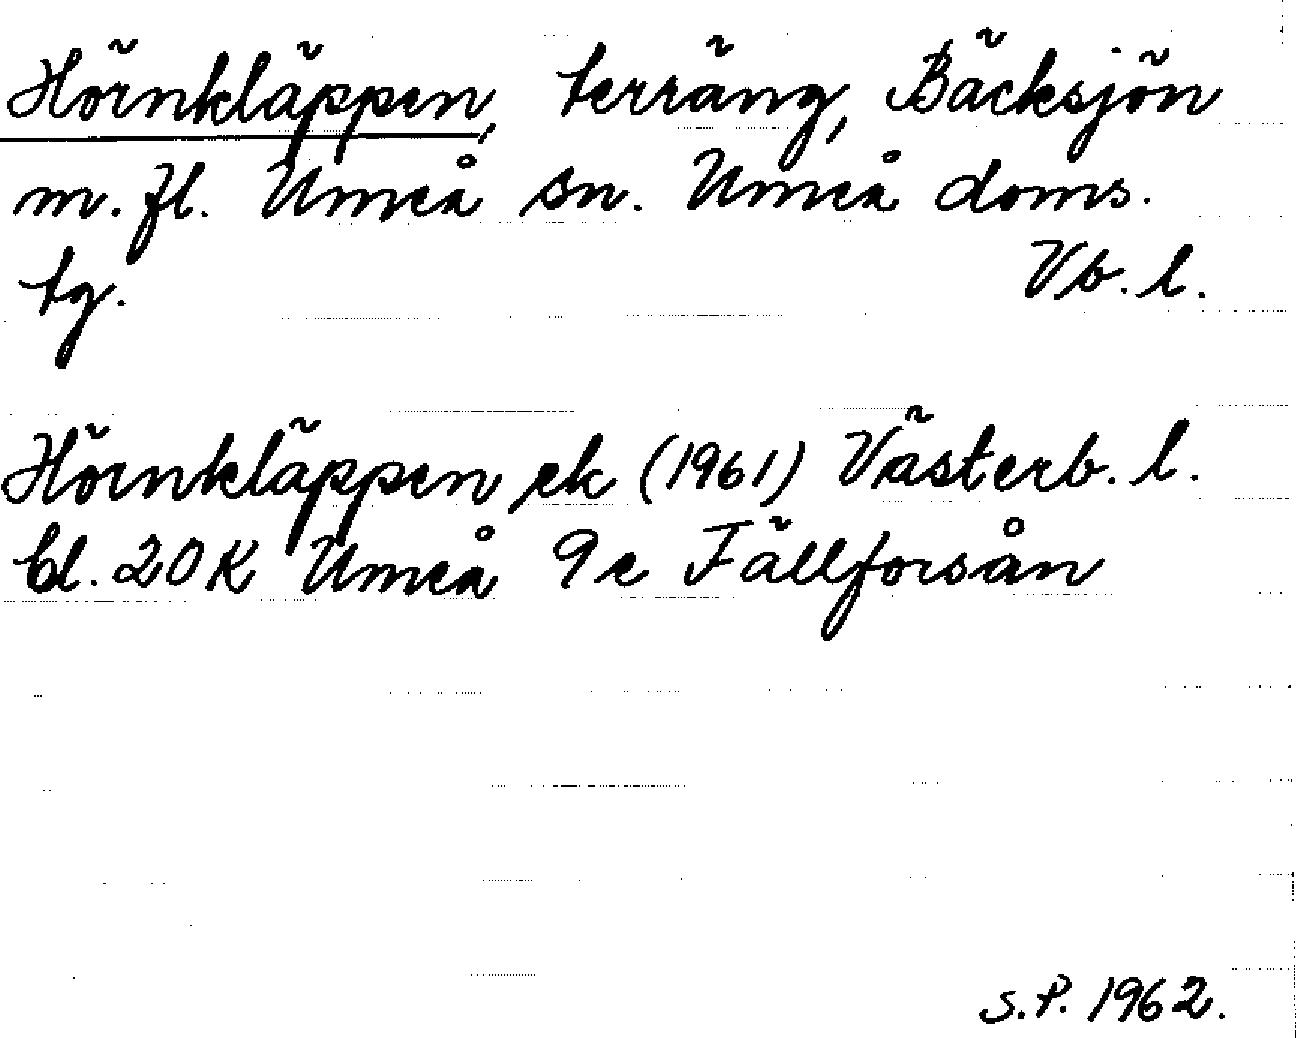 Hörnkläppen, terräng, Bäcksjön
m. fl. Umeå sn. Umeå doms.
tg. Vb. l.
Hörnkläppen ek (1961) Västerb. l.
bl. 20 K Umeå 9 e Fällforsån
S.P. 1962.